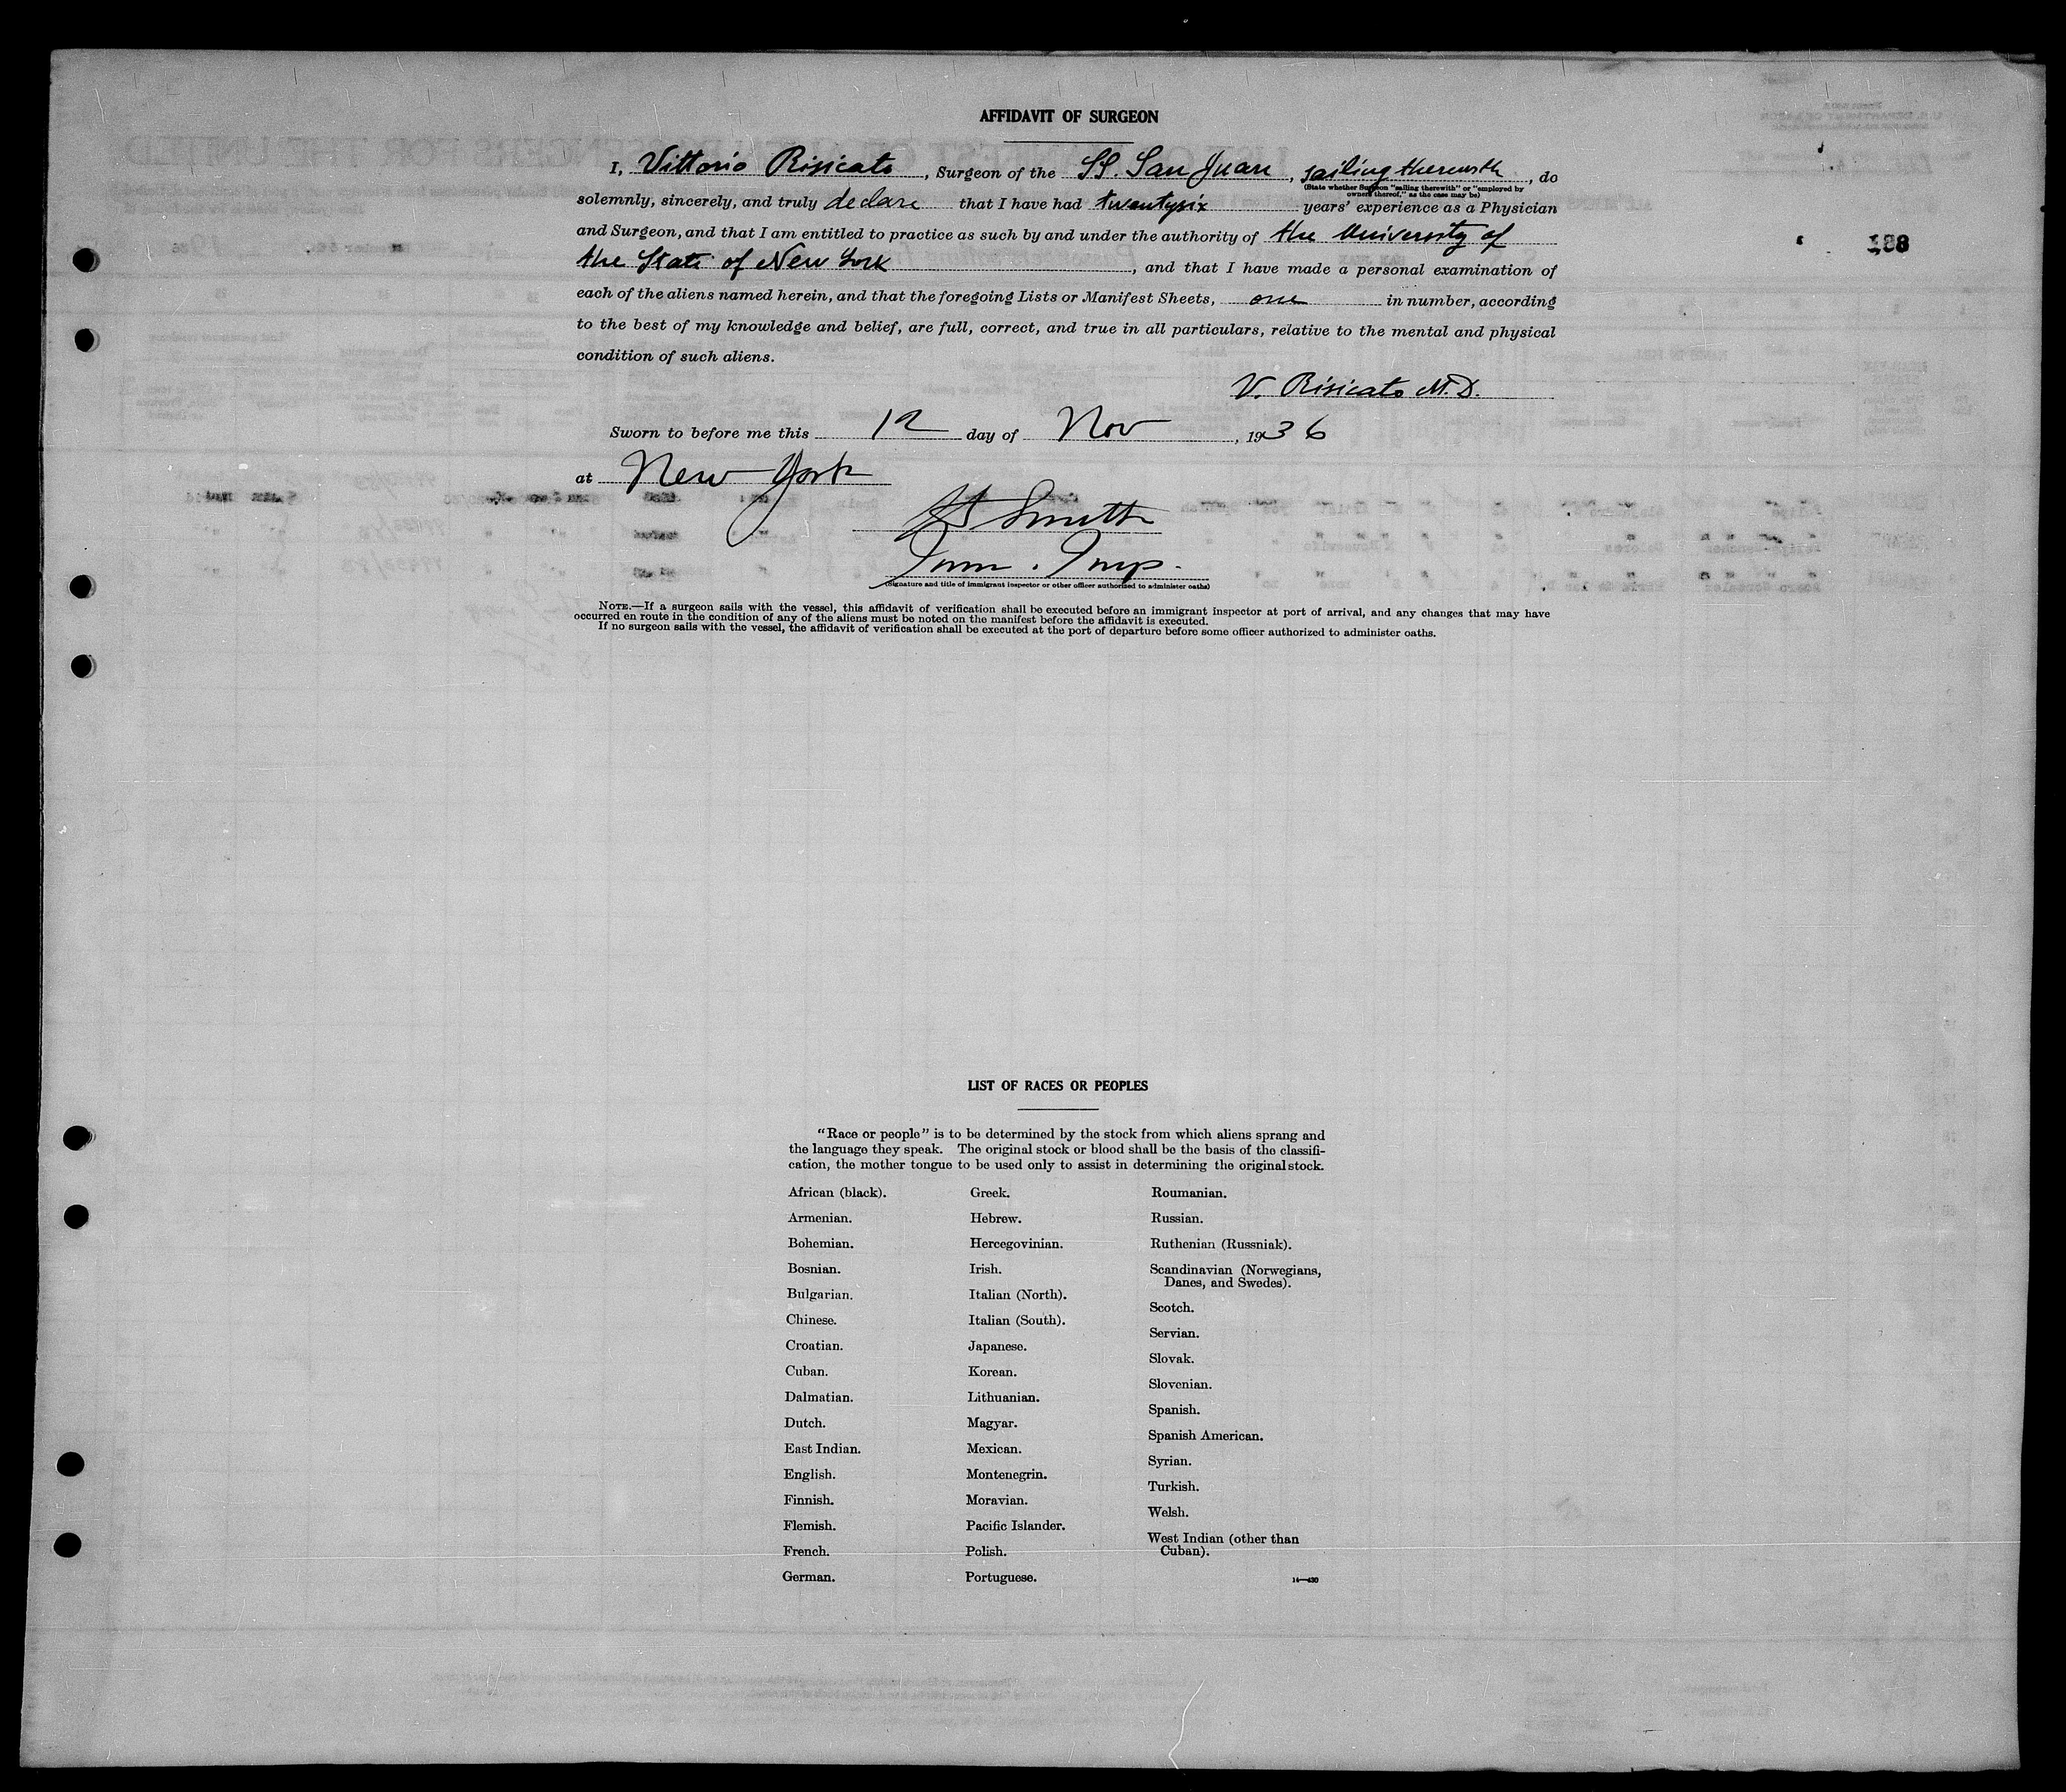 AFFIDAVIT OF SURGEON
I, Vittorio Risicato, Surgeon of the SS. San Juan, sailing therewith, do
(State whether Surgeon "sailing therewith" or "employed by
owners thereof," as the case may be)
solemnly, sincerely, and truly declare that I have had twentysix years' experience as a Physician
and Surgeon, and that I am entitled to practice as such by and under the authority of the University of
the State of New York, and that I have made a personal examination of
188
each of the aliens named herein, and that the foregoing Lists or Manifest Sheets, one in number, according
to the best of my knowledge and belief, are full, correct, and true in all particulars, relative to the mental and physical
condition of such aliens.
V. Risicato M.D.
Sworn to before me this 12 day of Nov, 1936
at New York
Smith
Imm. Insp.
(Signature and title of immigrant inspector or other officer authorized to administer oaths)
NOTE.—If a surgeon sails with the vessel, this affidavit of verification shall be executed before an immigrant inspector at port of arrival, and any changes that may have
occurred en route in the condition of any of the aliens must be noted on the manifest before the affidavit is executed.
If no surgeon sails with the vessel, the affidavit of verification shall be executed at the port of departure before some officer authorized to administer oaths.
LIST OF RACES OR PEOPLES
"Race or people" is to be determined by the stock from which aliens sprang and
the language they speak. The original stock or blood shall be the basis of the classifi-
cation, the mother tongue to be used only to assist in determining the original stock.
African (black).
Armenian.
Bohemian.
Bosnian.
Bulgarian.
Chinese.
Croatian.
Cuban.
Dalmatian.
Dutch.
East Indian.
English.
Finnish.
Flemish.
French.
German.
Greek.
Hebrew.
Hercegovinian.
Irish.
Italian (North).
Italian (South).
Japanese.
Korean.
Lithuanian.
Magyar.
Mexican.
Montenegrin.
Moravian.
Pacific Islander.
Polish.
Portuguese.
Roumanian.
Russian.
Ruthenian (Russniak).
Scandinavian (Norwegians,
Danes, and Swedes).
Scotch.
Servian.
Slovak.
Slovenian.
Spanish.
Spanish American.
Syrian.
Turkish.
Welsh.
West Indian (other than
Cuban).
14—430